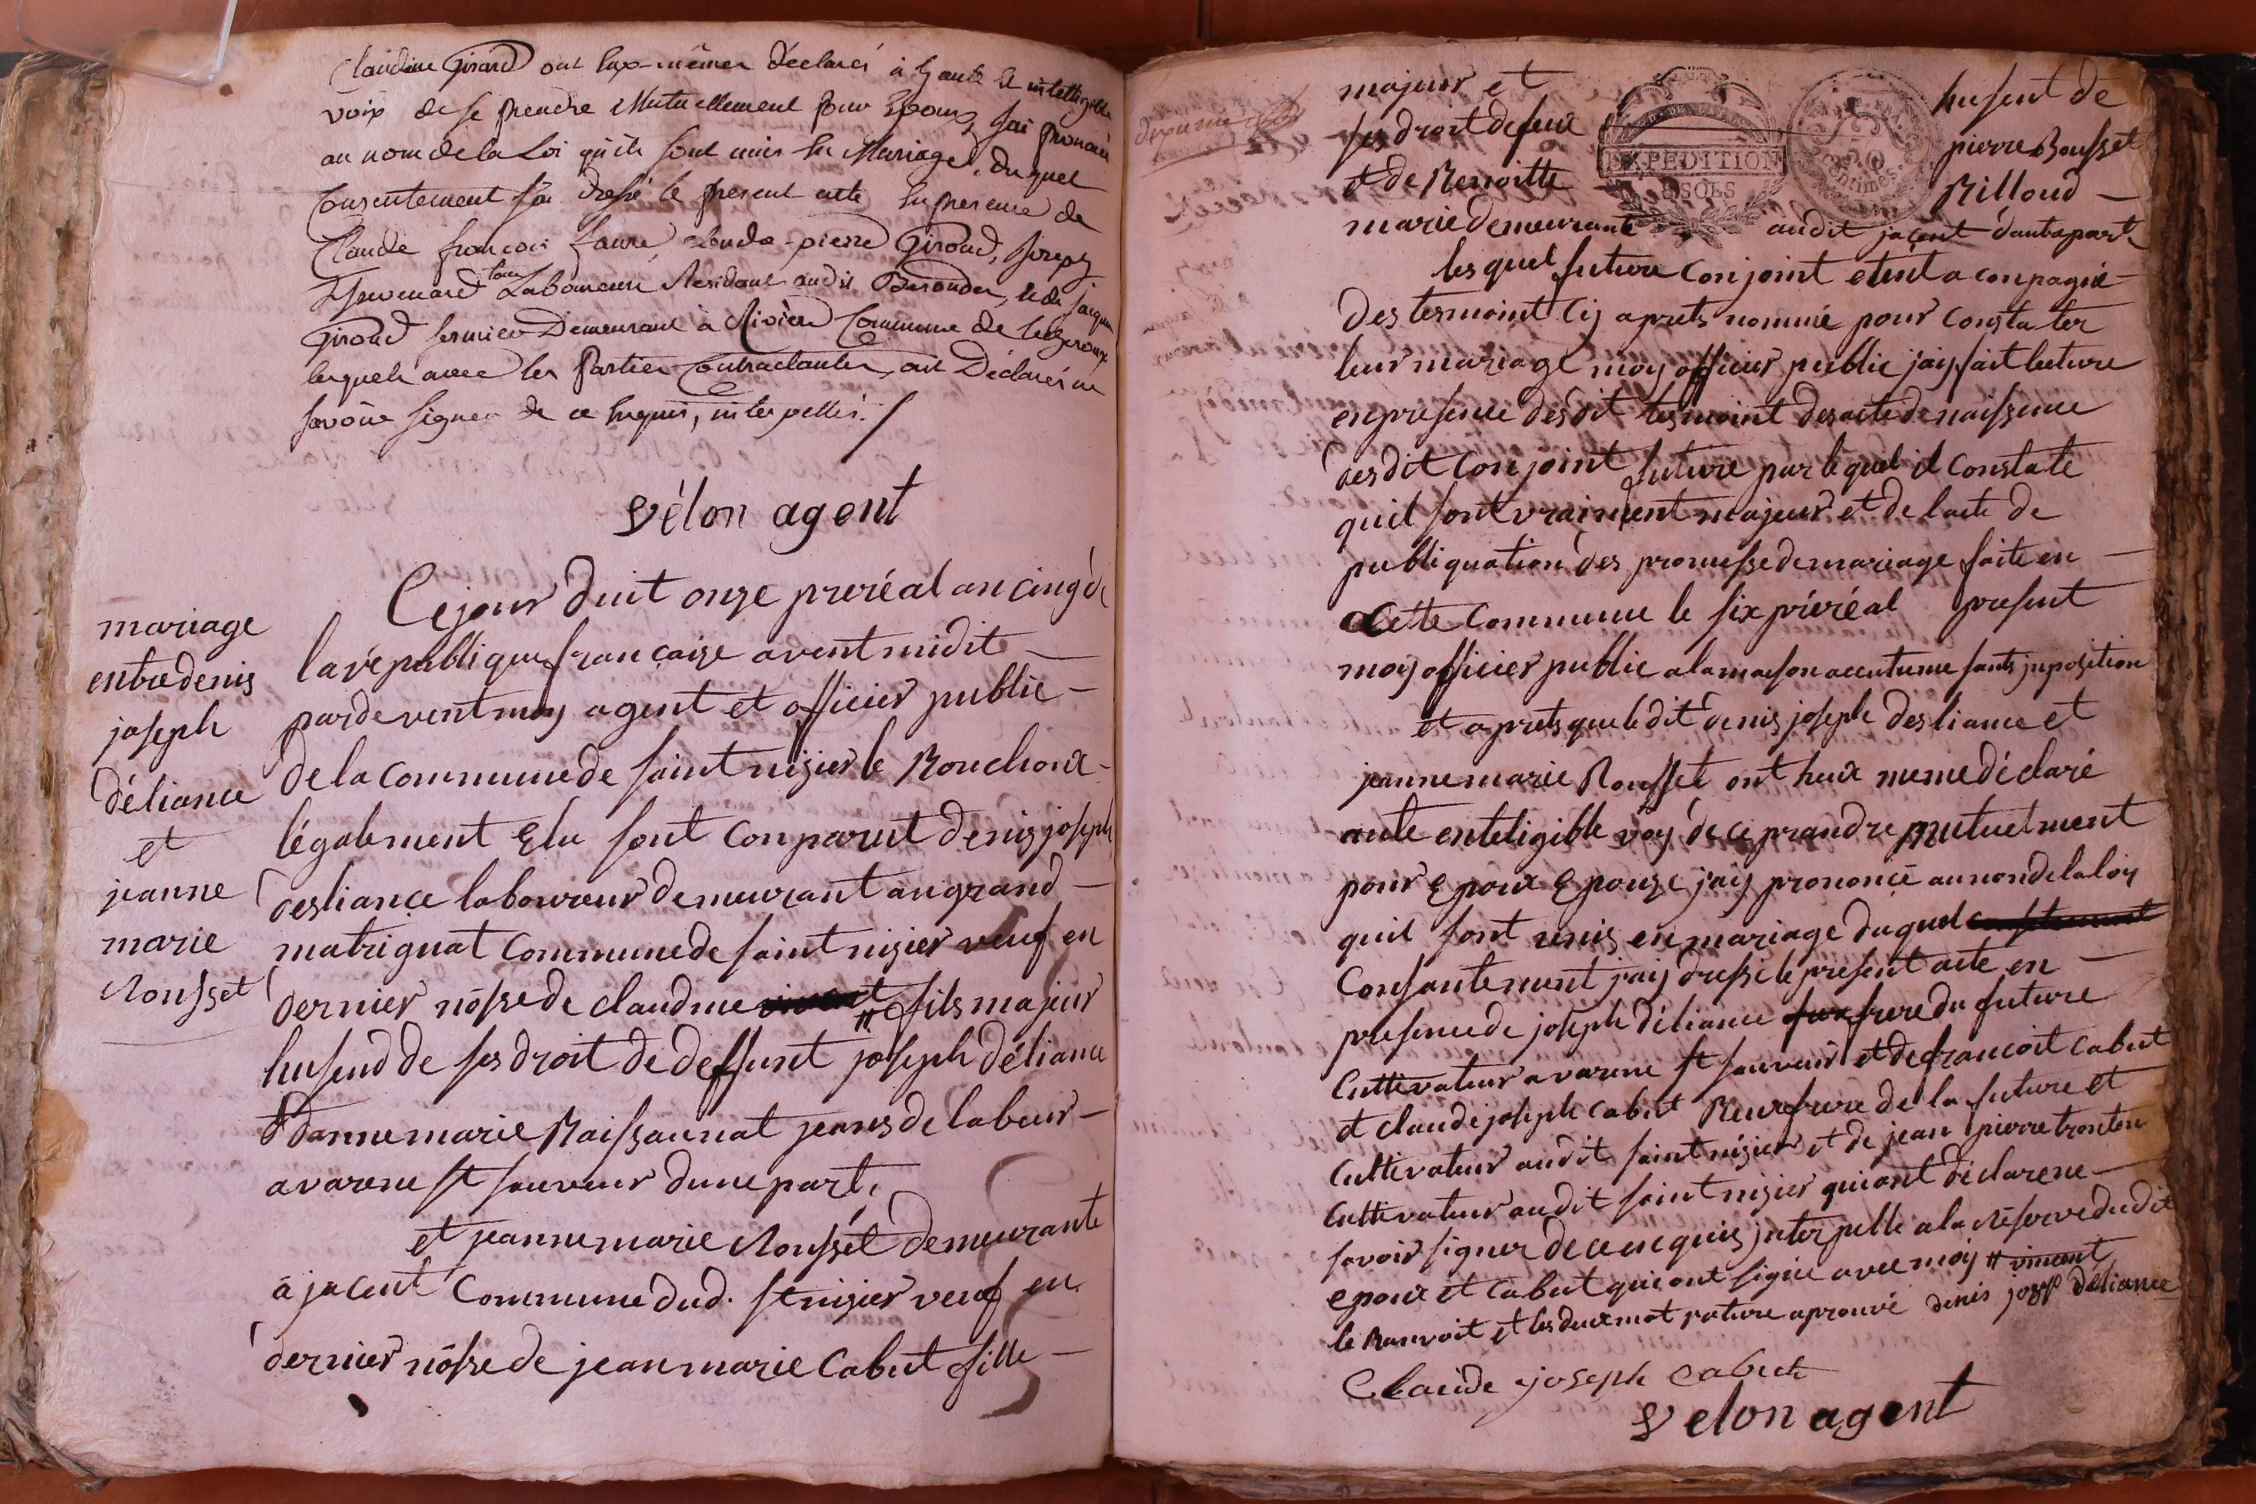 Claudine Girard ont Eux-mêmes déclarés à haute et intelligible
voix de se prendre Mutuellement pour Epoux, j'ai prononcé
au nom de la Loi qu'ils sont unis En Mariage, duquel
Consentement j'ai dressé le présent acte En presence de
Claude françois faure, claude-pierre Giroud, Joseph
Thevenard tous Laboureurs Residant audit et de jacques
Giroud fermier Demeurant à Rivière Commune de
lesquels avec les Parties Contractantes, ont Déclarés ne
savoire signer de ce Enquis, interpellés. /
Vélon agent
mariage
entre denis
joseph
déliance
et
jeanne
marie
Rousset
Ce jour duit onze preréal an cinq de
la république francaize avent midit
par de vent moy agent et officier public
de la commune de saint nizier le Bouchoux
légalement Elu sont conparut denis joseph
desliance laboureur demeurant au grand
matrignat commune de saint nizier veuf en
dernier nôsse de claudine # fils majeur
husend de ses droit de deffunt joseph déliance
et dannemarie Raissannat jeans de labeur
a varene st sauveur dune part,
et jeanne marie Rousset demeurante
a jacent commune dud. st nizier veuf en
dernier nôsse de jean marie Cabut fille
majeur et husent de
ses droit de feux pierre Rousset
et de Benoitte Rilloud
EXPEDITION
SOLS
Centimes
marie demeurante audit jacent dautre part
les quel future conjoint etent a conpagnié
des tesmoint cy aprets nommé pour constater
leur mariage moy officier public jay fait lecture
en presence desdit tesmoint des acte de naissance
des dit conjoint future par lequel il constate
quil sont vraiment majeur et de lacte de
publiquation des promesse de mariage faite en
cette commune le six préréal present
moy officier public a la maison accutume sants juposition
et aprets que le dit denis joseph desliance et
jeanne marie Rousset ont heux meme déclaré
aute enteligible voy de ce prandre mutuelment
pour Epoux Epouze jay prononcé au non de la loy
quil sont unis en mariage duquel
consantement jay dresse le present acte en
presence de joseph déliance frere du future
cultivateur a varene st sauveur et de francoit cabut
et claude joseph cabut Beux frere de la future et
cultivateur audit saint nizier et de jean pierre tronton
cultivateur audit saint nizier qui ont déclare ne
savoir signer de ce enquis jnterpellé a la réserve dudit
epoux et cabut qui ont signé avec moy # vincent
le Ranvoit et les deux mot rature aprouvé denis josph déliance
Claude joseph cabut
Velon agent